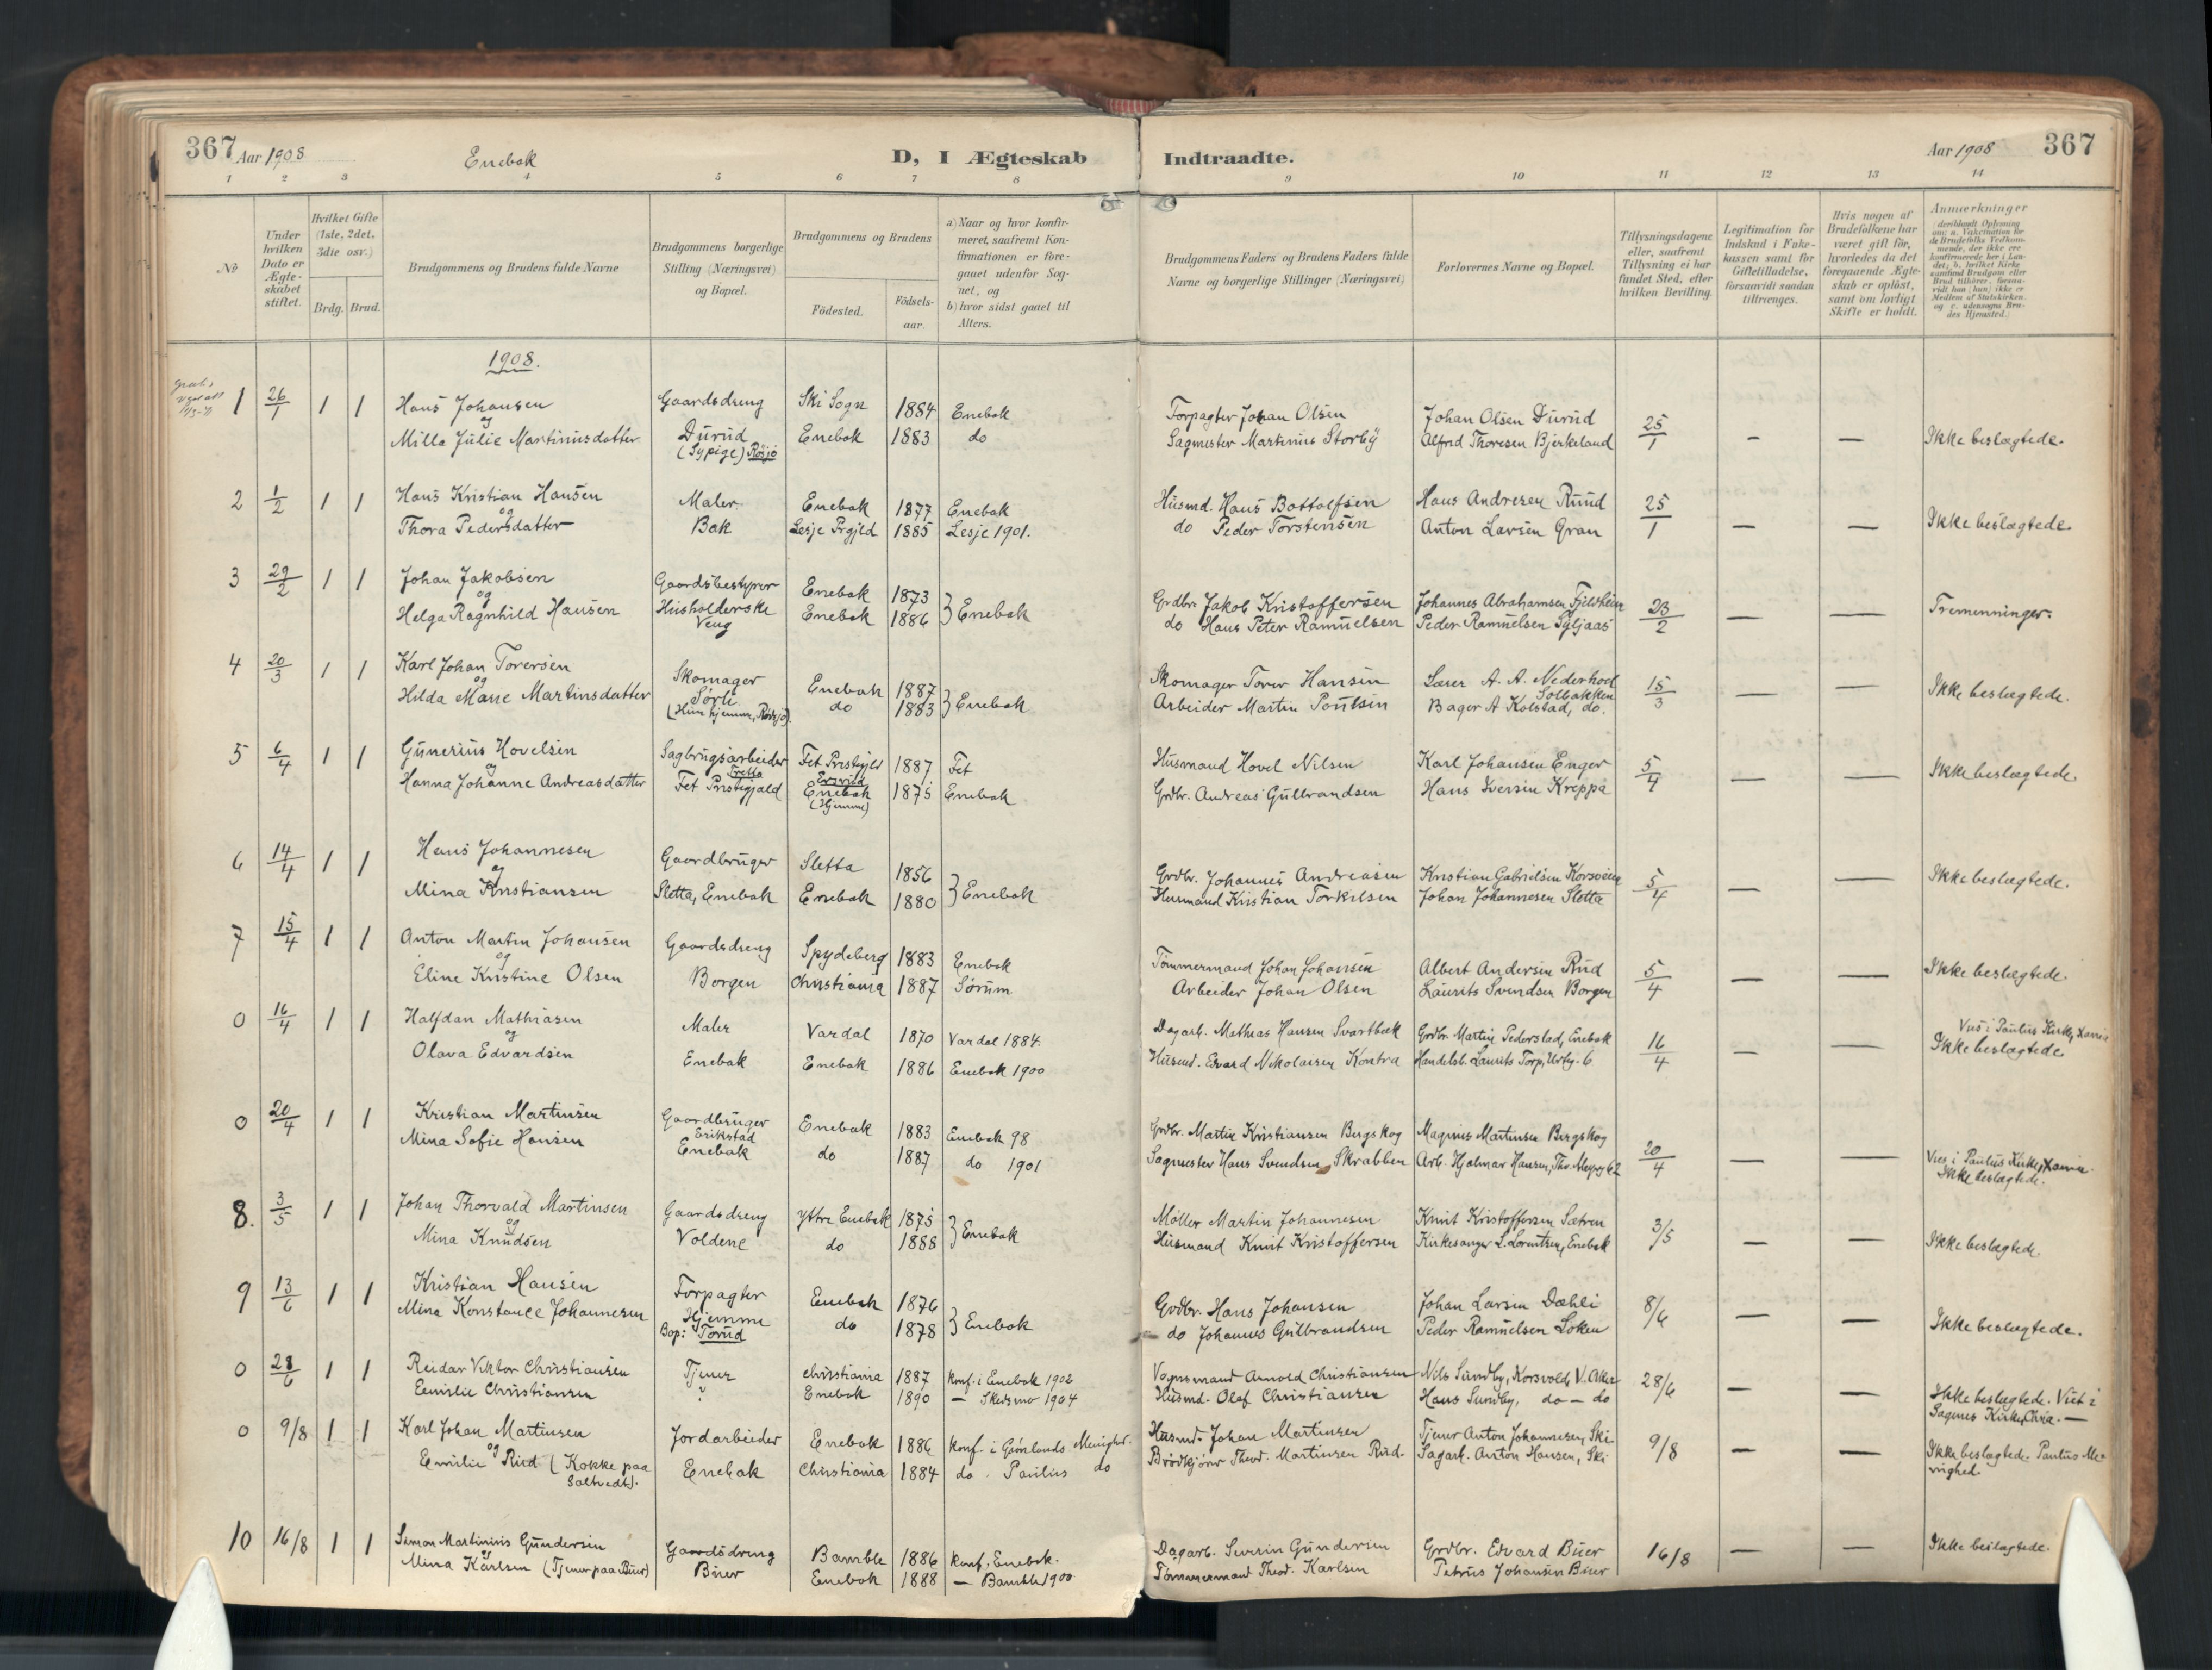 367 Aar 1908 Enebak D, I Ægteskab Indtraadte. Aar 1908 367
1 2 3 4 5 6 7 8 9 10 11 12 13 14
№
Under hvilken Dato er Ægteskabet stiftet.
Hvilket Gifte (1ste, 2det, 3die osv.)
Brdg. Brud.
Brudgommens og Brudens fulde Navne
Brudgommens borgerlige Stilling (Næringsvei) og Bopæl.
Brudgommens og Brudens
Födested. Födsels-aar.
a) Naar og hvor konfirmeret, saafremt Konfirmationen er foregaaet udenfor Sognet, og
b) hvor sidst gaaet til Alters.
Brudgommens Faders og Brudens Faders fulde Navne og borgerlige Stillinger (Næringsvei)
Forlovernes Navne og Bopæl.
Tillysningsdagene eller, saafremt Tillysning ei har fundet Sted, efter hvilken Bevilling.
Legitimation for Indskud i Enkekassen samt for Giftetilladelse, forsaavidt saadan tiltrænges.
Hvis nogen af Brudefolkene har været gift för, hvorledes da det foregaaende Ægteskab er oplöst, samt om lovligt Skifte er holdt.
Anmærkninger
(deriblandt Oplysning om: a. Vakcination for de Brudefolks Vedkommende, der ikke ere konfirmerede her i Landet; b. hvilket Kirkesamfund Brudgom eller Brud tilhörer, forsaavidt han (hun) ikke er Medlem af Statskirken og c. udensogns Brudes Hjemsted.)
1908.
1 26/1 1 1 Hans Johansen Gaardsdreng Ski Sogn 1884 Enebak Forpagter Johan Olsen Johan Olsen Durud 25/1 - — Ikke beslægtede.
og
Milla Julie Martinusdatter Durud Enebak 1883 do Sagmester Martinius Storby Alfred Thoresen Bjerkeland
(Sypige) Røsjø
2 1/2 1 1 Hans Kristian Hansen Maler Enebak 1877 Enebak Husmd. Hans Bottolfsen Hans Andresen Ruud 25/1 — — Ikke beslægtede.
og
Thora Pedersdatter Bak Lesje Prgjld 1885 Lesje 1901. do Peder Torstensen Anton Larsen Gran
3 29/2 1 1 Johan Jakobsen Gaardsbestyrer Enebak 1873 } Enebak Grdbr. Jakob Kristoffersen Johannes Abrahamsen Fjeldheim 23/2 — — Tremenninger.
og
Helga Ragnhild Hansen Husholderske Enebak 1886 do Hans Peter Ramuelsen Peder Rammelsen Syljaas
Veng
4 20/3 1 1 Karl Johan Torersen Skomager Enebak 1887 } Enebak Skomager Torer Hansen Lærer A. A. Nederhoel 15/3 — — Ikke beslægtede.
og Solbakken
Hilda Marie Martinsdatter Sørli do 1883 Arbeider Martin Poulsen Bager A Kolstad, do.
5 6/4 1 1 Gunerius Hovelsen Sagbrugsarbeider Fet Prestgjld 1887 Fet Husmand Hovel Nilsen Karl Johansen Enger 5/4 — — Ikke beslægtede.
og
Hanna Johanne Andreasdatter Fet Prestegjæld Enebak 1875 Enebak Grdbr. Andreas Gulbrandsen Hans Iversen Kreppa
(Hjemme)
6 14/4 1 1 Hans Johannesen Gaardbruger Sletta 1856 } Enebak Grdbr. Johannes Andreasen Kristian Gabrielsen Korsveien 5/4 — — Ikke beslægtede.
og
Mina Kristiansen Sletta, Enebak Enebak 1880 Husmand Kristian Torkilsen Johan Johannesen Sletta
7 15/4 1 1 Anton Martin Johansen Gaardsdreng Spydeberg 1883 Enebak Tømmermand Johan Johansen Albert Andersen Rud 5/4 — — Ikke beslægtede.
og
Eline Kristine Olsen Borgen Christiania 1887 Sørum Arbeider Johan Olsen Laurits Svendsen Borgen
0 16/4 1 1 Halfdan Mathiasen Maler Vardal 1870 Vardal 1884. Dagarb. Mathias Hansen Svartbæk Grdbr. Martin Pederstad, Enebak 16/4 — — Viet i Paulus Kirke, Xania
og Ikke beslægtede
Olava Edvardsen Enebak Enebak 1886 Enebak 1900 Husmd. Edvard Nikolaisen Kontra Handelsb. Laurits Torp,
0 20/4 1 1 Kristian Martinsen Gaardbruger Enebak 1883 Enebak 98 Grdbr. Martin Kristiansen Bergskog Magnus Martinsen Bergskog 20/4 — —
Erikstad
Mina Sofie Hansen Enebak do 1887 do 1901 Sagmester Hans Svendsen Skrabben Arb. Hjalmar Hansen, Thv. Meyersg 62 Viet i Paulus Kirke, Xania.
Ikke beslægtede.
8. 3/5 1 1 Johan Thorvald Martinsen Gaardsdreng Ytre Enebak 1875 } Enebak Møller Martin Johannesen Knut Kristoffersen Sætren 3/5 — — Ikke beslægtede.
og
Mina Knudsen Voldene do 1888 Husmand Knut Kristoffersen Kirkesanger L. Lorentzen, Enebak
9 13/6 1 1 Kristian Hansen Forpagter Enebak 1876 } Enebak Grdbr. Hans Johansen Johan Larsen Dæhli 8/6 — — Ikke beslægtede.
Mina Konstance Johannesen Hjemme do 1878 do Johannes Gulbrandsen Peder Ramuelsen Løken
Bop: Torud
0 28/6 1 1 Reidar Viktor Christiansen Tjener Christiania 1887 Konf. i Enebak 1902 Vognmand Arnold Christiansen Nils Sundby, Korsvold, V. Aker 28/6 — —
Emilie Christiansen " Enebak 1890 — Skedsmo 1904 Husmd. Olaf Christiansen Hans Sundby, do — do Ikke beslægtede. Viet i
Sagenes Kirke, Chria. —
0 9/8 1 1 Karl Johan Martinsen Jordarbeider Enebak 1886 Konf. i Grønlands Menighed. Husmd. Johan Martinsen Tjener Anton Johannesen, Ski 9/8 — — Ikke beslægtede. Paulus Me-
og
Emilie Rud (Kokke paa Enebak Christiania 1884 do. Paulus do Brødkjører Theod. Martinsen Rud. Sagarb. Anton Hansen, Ski nighed.
Saltvedt).
10 16/8 1 1 Simon Martinius Gundersen Gaardsdreng Bamble 1886 Konf. Enebak. Dagarb. Severin Gundersen Grdbr. Edvard Buer 16/8 — — Ikke beslægtede.
og
Mina Karlsen (Tjener paa Buer) Buer Enebak 1888 — Bamble 1900 Tømmermand Theod. Karlsen Petrus Johansen Buer